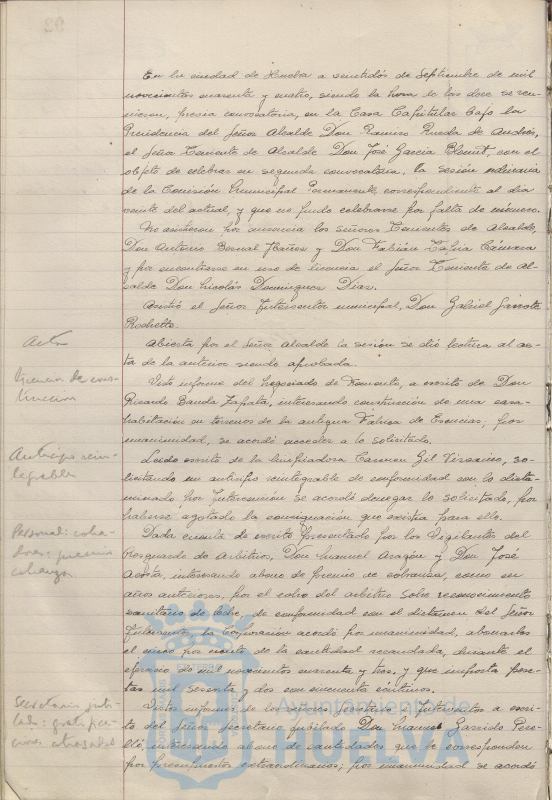 En la ciudad de Huelva a veintidós de Septiembre de mil
novecientos cuarenta y cuatro, siendo la hora de las doce se reu-
nieron, previa convocatoria, en la Casa Capitular bajo la
Presidencia del Señor Alcalde Don Ramiro Pineda de Andrés,
el Señor Teniente de Alcalde Don José García con el
objeto de celebrar en segunda convocatoria, la sesión ordinaria
de la Comisión Municipal Permanente, correspondiente al día
veinte del actual, y que no pudo celebrarse por falta de número.
No asistieron por ausencia los señores Tenientes de Alcalde,
Don Antonio Bernal Mañez y Don Fabián Tapia Cámara
y por encontrarse en uso de licencia el Señor Teniente de Al-
calde Don Nicolás Dominguez Díaz.
Asistió el Señor Interventor municipal, Don Gabriel Garrote
Acta
Abierta por el Señor Alcalde la sesión se dió lectura al ac-
ta de la anterior siendo aprobada.
licencia de cons-
trucción
Visto informe del Negociado de Fomento, a escrito de Don
Ricardo Banda Zapata, interesando construcción de una casa
habitación en terrenos de la antigua Fábrica de Esencias; por
unanimidad, se acordó acceder a lo solicitado.
Anticipo rein-
tegrable
Leído escrito de la limpiadora Carmen Gil, so-
licitando un anticipo reintegrable de conformidad con lo dicta-
minado por Intervención se acordó denegar lo solicitado, por
haberse agotado la consignación que existía para ello.
Personal: coba-
dores: premio
cobranza
Dada cuenta de escrito presentado por los Vigilantes del
Resguardo de Arbitrios, Don Manuel Aragón y Don José
Acosta, interesando abono de premio de cobranza, como en
años anteriores, por el cobro del arbitrio sobre reconocimiento
sanitario de leche, de conformidad con el dictamen del Señor
Interventor, la Corporación acordó por unanimidad, abonarles
el cinco por ciento de la cantidad recaudada, durante el
ejercicio de mil novecientos cuarenta y tres, y que importa pese-
tas mil sesenta y dos con cincuenta céntimos.
Secretario jubi-
lado: gratifica-
ciones atrasadas
Vistos informes de los señores e Interventor a escri-
to del Señor Secretario jubilado Don Manuel Garrido Pere-
lló, interesando abono de cantidades que le corresponden
por presupuestos extraordinarios; por unanimidad se acordó
Ayuntamiento de
HUELVA